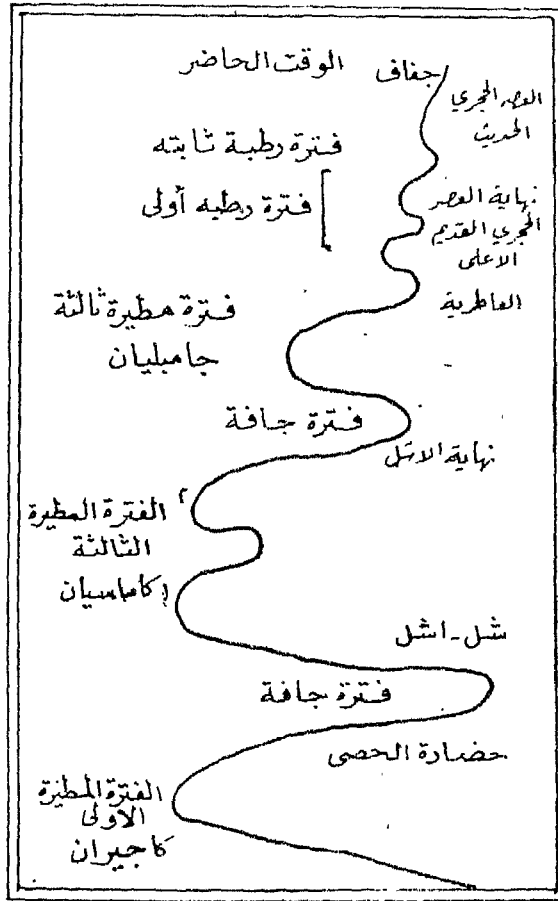 جفاف الوقت الحاضر
العصر الحجري
الحديث
فترة رطبة ثابته
نهاية العصر
فترة رطبه أولى
الحجري القديم
الاعلى
العاطرية
فترة مطيرة ثالثة
جامبليان
فترة جافة
نهاية الاشل
الفترة المطيرة
الثالثة
كاماسيان
شل - اشل
فترة جافة
حضارة الحصى
الفترة المطيرة
الاولى
كاجيران